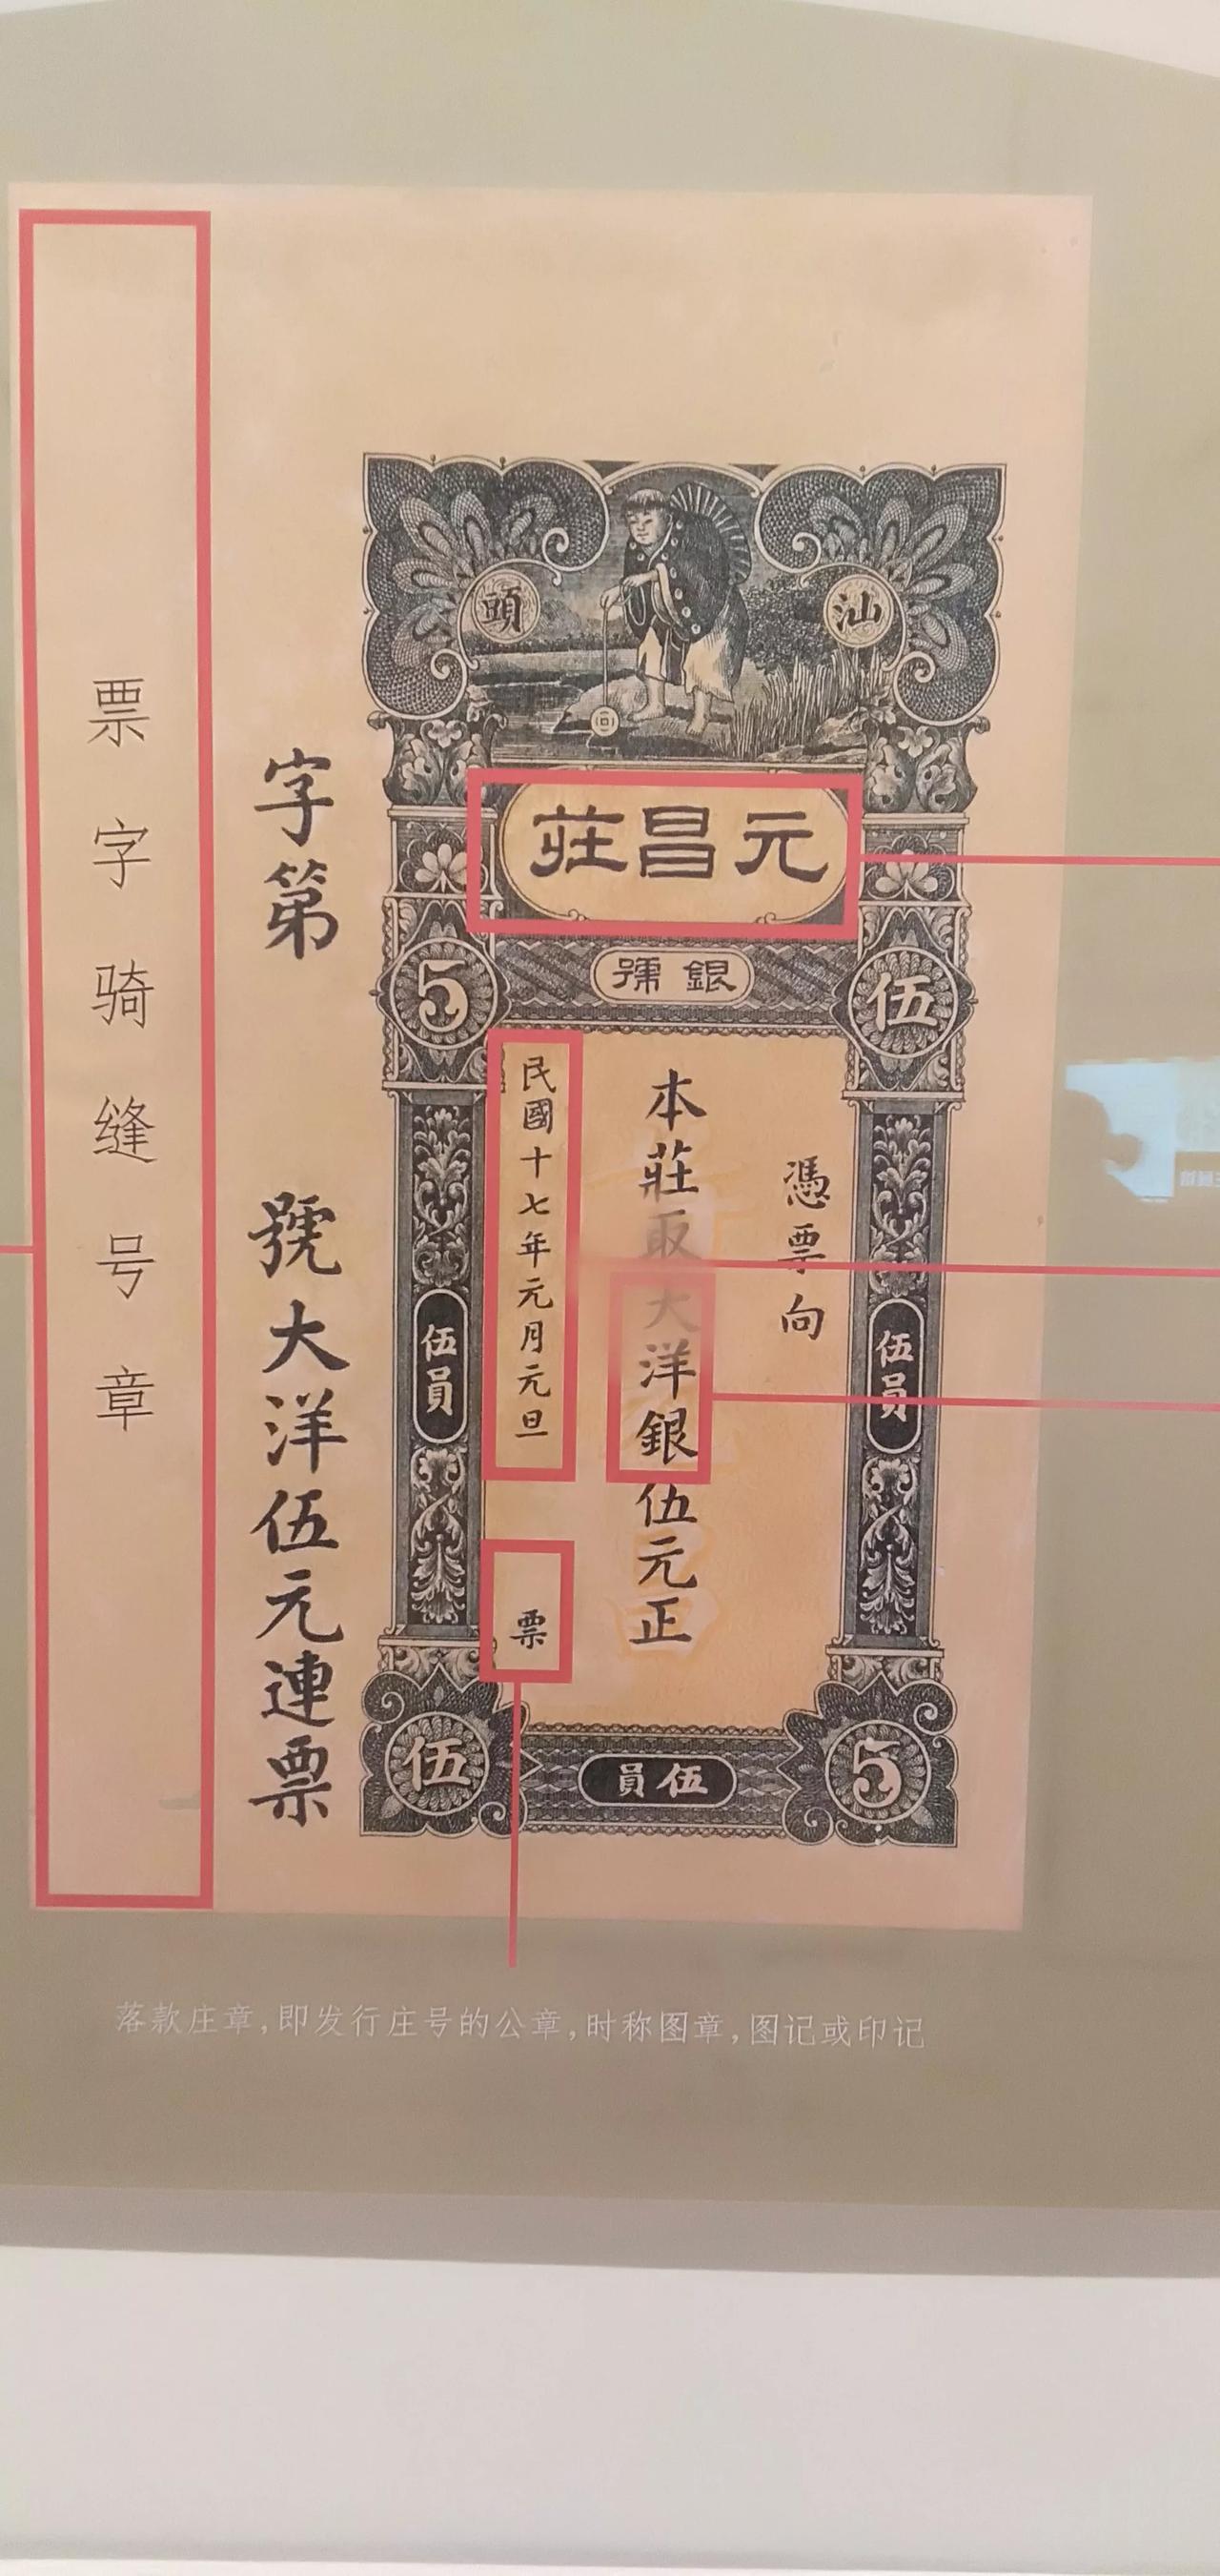 汕頭
元昌莊
銀號
5
伍
憑票向
本莊取大洋銀伍元正
民國十七年元月元旦
票
伍員
伍員
伍
伍員
5
字第
號大洋伍元連票
票字骑缝号章
落款庄章,即发行庄号的公章,时称图章,图记或印记